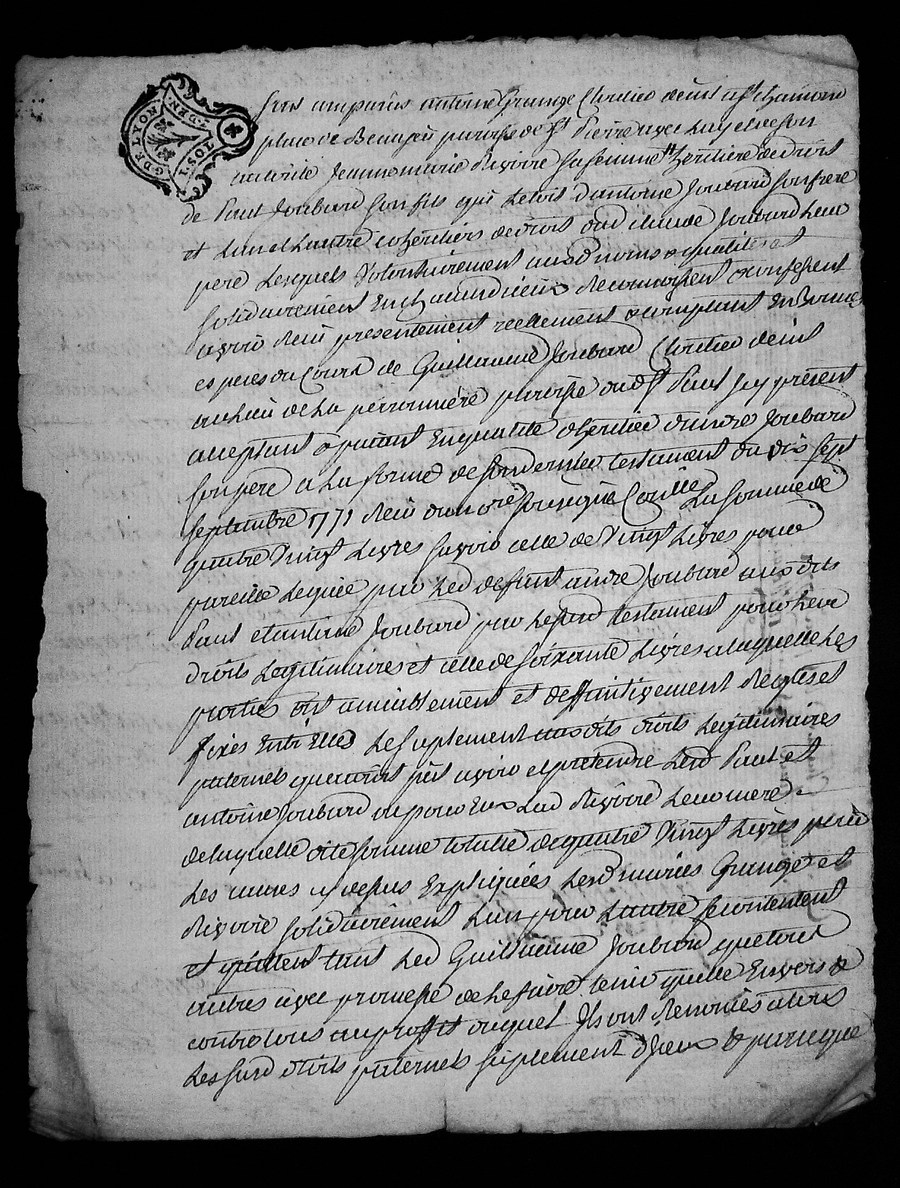 G DE LYON
1 SOL 8 DEN
Sont comparus antoine Grange Cloutier de cette ville de st chamond
place de Beaujeu paroisse de st Pierre avec luy et de son
autorité Jeanne marie Rivoire sa femme heritiere de droit
de Paul Joubard son fils qui letoit dantoine Joubard son frere
et lun et Lautre coheritiers de droit dud claude Joubard Leur
pere Lesquels volontairement auxd noms & qualités et
solidairement lun et chacun d'eux Reconnoissent & confessent
avoir Reçu presentement reellement & comptant En Bonnes
especes du Cours de Guillaume Joubard Cloutier de
au Lieu de La peronniere paroisse dud st Paul Icy present
acceptant & païant En qualité d'heritier d'andré Joubard
son pere a La forme de son dernier testament du dix sept
septembre 1771 Reçu d'un nore soussigné La somme de
quatre vingt Livres savoir celle de vingt Livres pour
pareille Leguée par Led defunt andré Joubard auxdits
Paul et antoine Joubard par Le susd testament pour Leur
droits Legitimaires et celle de soixante Livres a laquelle Les
parties ont amiablement et deffinitivement Reglés et
fixés Entr'Elles Le suplement ausdits droits Legitimaires
paternels qu'auroient pût avoir et pretendre Lesd Paul et
antoine Joubard ou pour Eux Lad Rivoire Leur mere
de laquelle dite somme totale de quatre vingt Livres pour
Les causes cy dessus Expliquées Lesd mariés Grange et
Rivoire solidairement Lun pour Lautre se contentent
et quittent tant Led Guillaume Joubard que tous
autres avec promesse de Le faire tenir quitte Envers &
contre tous au proffit duquel Ils ont Renoncés a tous
Les susd droits paternels suplement d'Iceux & parceque